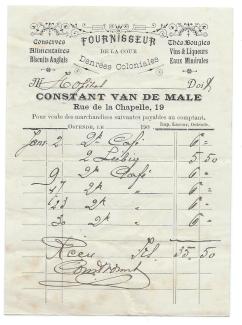 FOURNISSEUR
DE LA COUR
Denrées Coloniales
Conserves
Alimentaires
Biscuits Anglais
Thés, Bougies
Vins & Liqueurs
Eaux Minérales
M Doit
CONSTANT VAN DE MALE
Rue de la Chapelle, 19
Pour vente des marchandises suivantes payables au comptant,
OSTENDE, LE 190 Imp. Liseur, Ostende.
2 2 Café 6 =
2 5.50
9 2 Café 6 =
17 2 " 6 =
23 2 " 6 =
30 2 " 6 =
35.50